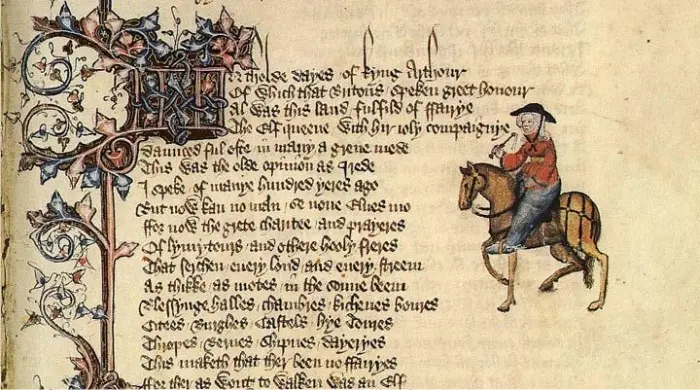 IN tholde dayes of kyng Arthour
Of which that Britons speken greet honour
Al was this land fulfild of ffairye
The Elf queene with hir ioly compaignye
Daunced ful ofte in many a grene mede
This was the olde opinion as I rede
I speke of manye hundred yeres ago
But now kan no man se none Elues mo
ffor now the grete charitee and prayeres
Of lymytours and othere hooly freres
That serchen euery lond and euery streem
As thikke as motes in the sonne beem
Blessynge halles chambres kichenes boures
Citees Burghes Castels hye Toures
Thropes Bernes Shipnes Dayeryes
This maketh that ther been no ffairyes
ffor ther as wont to walken was an Elf